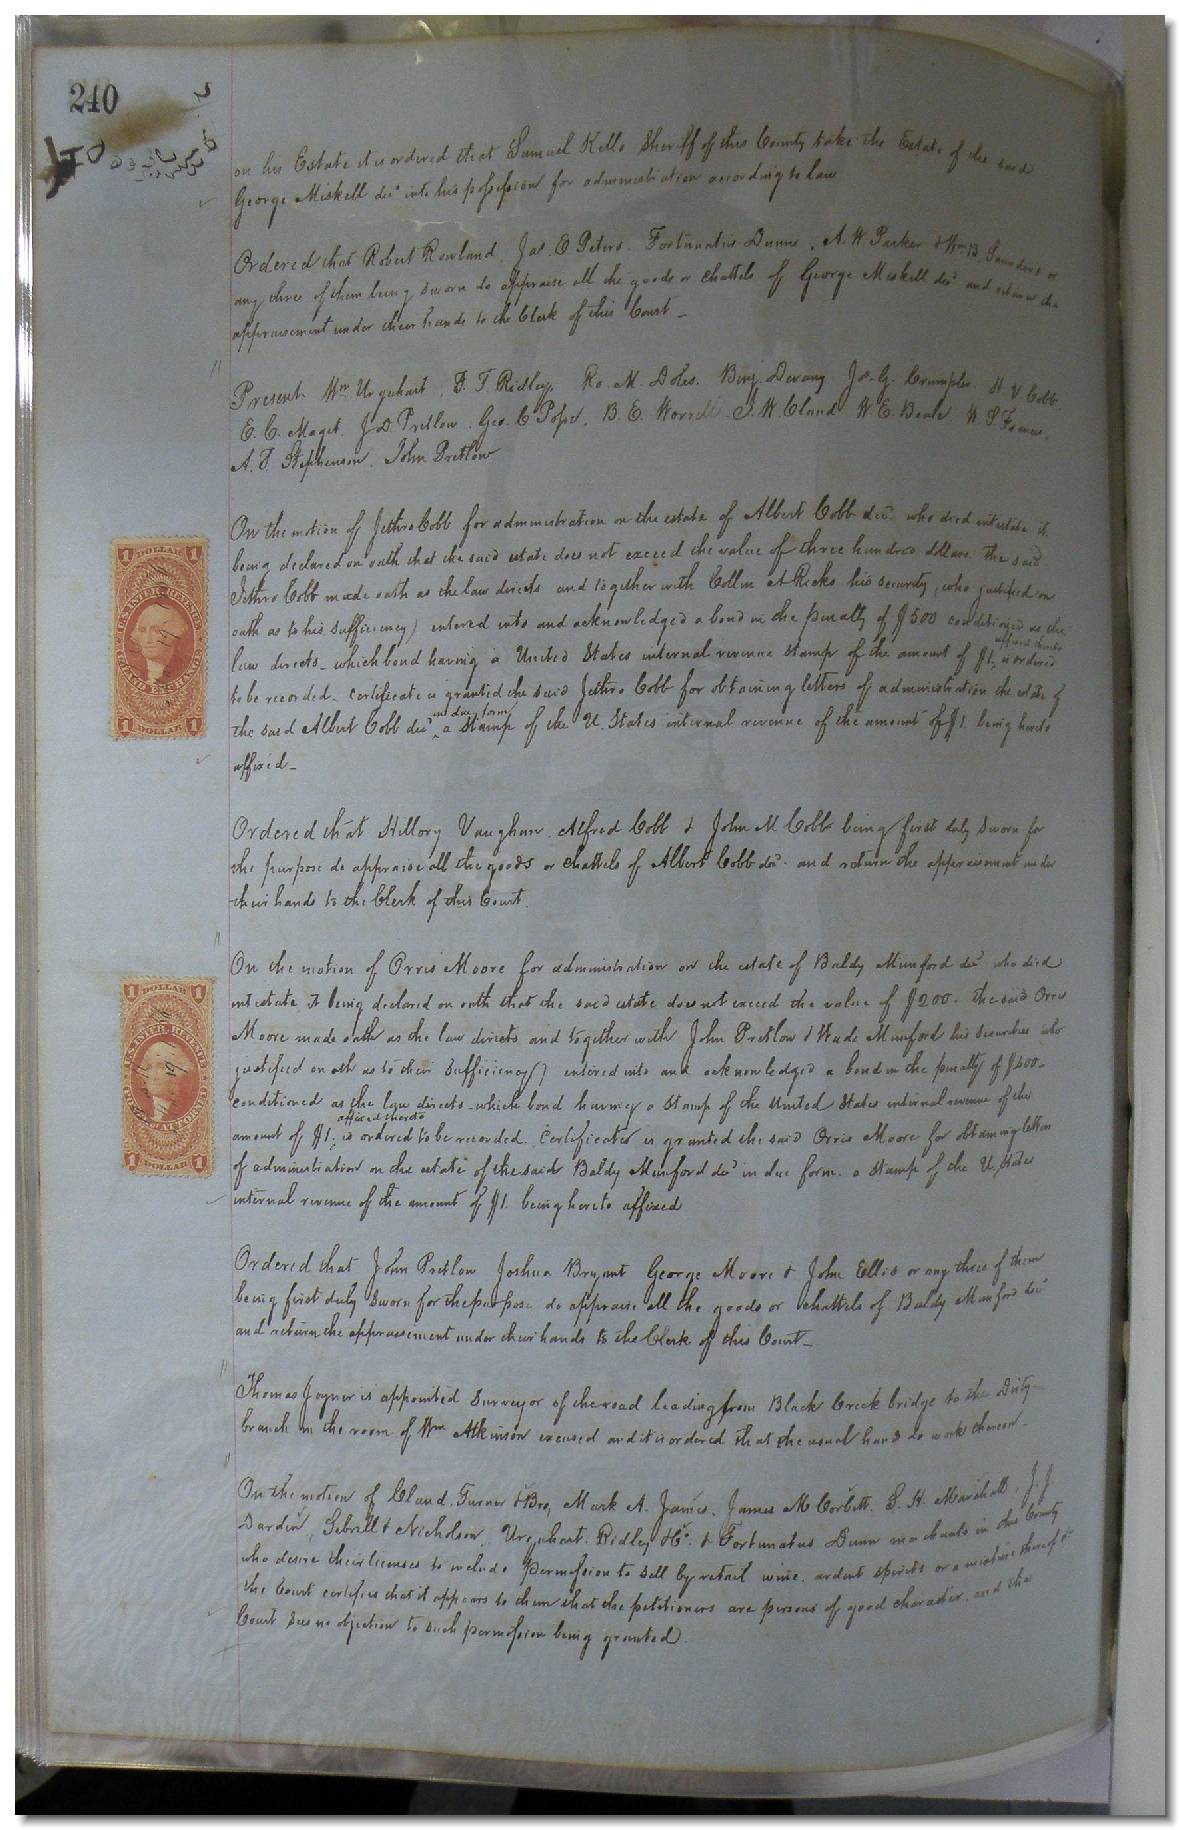 240
on his Estate it is ordered that Samuel Kello Sheriff of this County take the Estate of the said
George Miskell decd into his possession for administration according to law
Ordered that Robert Rowland, Jas. E Peters. Fortunatus Dunn, A. W. Parker & Wm B Saunders or
any three of them being sworn do appraise all the goods or chattels of George Miskell decd and return the
appraisement under their hands to the Clerk of this Court
Present. Wm Urquhart, D. T. Ridley, Ro. M. Doles. Benj. Devany Js. G. Crumpler. H V Cobb
E. C. Maget. J D Pretlow. Geo. C Pope, B. E. Worrell. J. W. Claud W. E. Beale W S Francis
A. J. Stephenson. John Pretlow
On the motion of Jethro Cobb for administration on the estate of Albert Cobb decd who died intestate it
being declared on oath that the said estate does not exceed the value of three hundred dollars the said
Jethro Cobb made oath as the law directs and together with Collin A Ricks his security, who justified on
oath as to his sufficiency) entered into and acknowledged a bond in the penalty of $500 conditioned as the
law directs - which bond having a United States internal revenue stamp of the amount of $1, affixed thereto is ordered
to be recorded. Certificate is granted the said Jethro Cobb for obtaining letters of administration the estate of
the said Albert Cobb decd in due form a Stamp of the U. States internal revenue of the amount of $1. being hereto
affixed -
Ordered that Hillory Vaughan. Alfred Cobb & John M Cobb being first duly sworn for
the purpose do appraise all the goods or chattels of Albert Cobb decd. and return the appraisement under
their hands to the Clerk of this Court.
On the motion of Orris Moore for administration on the estate of Baldy Munford decd who died
intestate it being declared on oath that the said estate does not exceed the value of $200. the said Orris
Moore made oath as the law directs and together with John Pretlow & Wade Munford his securities who
justified on oath as to their sufficiency) entered into and acknowledged a bond in the penalty of $200.
conditioned as the law directs - which bond having a stamp of the United States internal revenue of the
amount of $1, affixed thereto is ordered to be recorded. Certificate is granted the said Orris Moore for obtaining letters
of administration on the estate of the said Baldy Munford decd in due form. a stamp of the U. States
internal revenue of the amount of $1. being hereto affixed
Ordered that John Pretlow Joshua Bryant George Moore & John Ellis or any three of them
being first duly sworn for the purpose do appraise all the goods or chattels of Baldy Munford decd
and return the appraisement under their hands to the Clerk of this Court -
Thomas Joyner is appointed Surveyor of the road leading from Black Creek bridge to the Dirty
branch in the room of Wm Atkinson excused and it is ordered that the usual hands do work thereon -
On the motion of Claud. Turner & Bro, Mark A. James, James M Corbett. S. H. Marshall, J. J.
Dardin, Sebrell & Nicholson, Urquhart. Ridley & Co. & Fortunatus Dunn merchants in this County
who desire their licenses to include permission to sell by retail wine, ardent spirits or a mixture thereof
the Court certifies that it appears to them that the petitioners are persons of good character, and the
Court sees no objection to such permission being granted.
1 DOLLAR 1
U.S. INTER. REVENUE
INLAND EXCHANGE
1 DOLLAR 1
1 DOLLAR 1
U.S. INTER. REVENUE
POWER OF ATTORNEY
1 DOLLAR 1